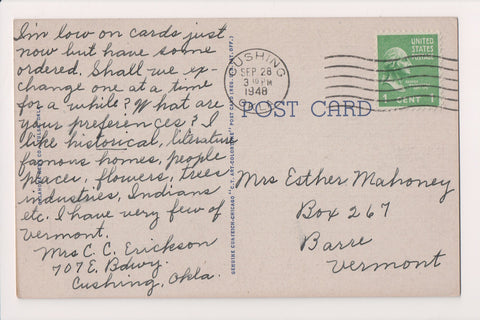 I'm low on cards just
now but have some
ordered. Shall we ex-
change one at a time
for a while? What are
your preferences? I
like historical, literature
famous homes, people
places, flowers, trees
industries, Indians
etc. I have very few of
Vermont.
Mrs C. C. Erickson
707 E. Bdwy.
Cushing, Okla.
GENUINE CURTEICH-CHICAGO "C.T. ART-COLORTONE" POST CARD (REG. U.S. PAT. OFF.)
CUSHING
SEP 28
3 PM
1948
OKLA.
UNITED STATES
POSTAGE
1 CENT 1
POST CARD
Mrs Esther Mahoney
Box 267
Barre
Vermont